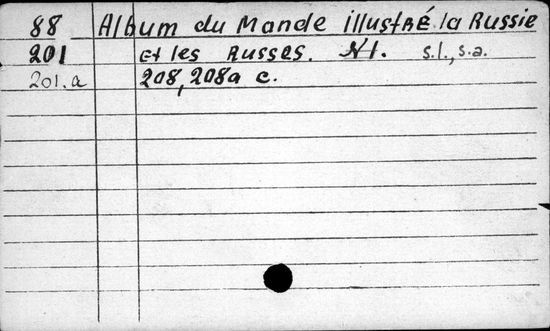 88 Album du Monde illustré la Russie
201 et les Russes. N1. s.l., s.a.
201.a 208, 208a c.